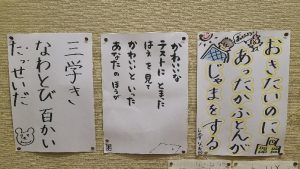 おきたいのに
あったかふとんが
じゃまをする
かわいいな
テストにとまった
はえを見て
かわいいといった
あなたのほうが
三学き
なわとび百かい
たっせいだ